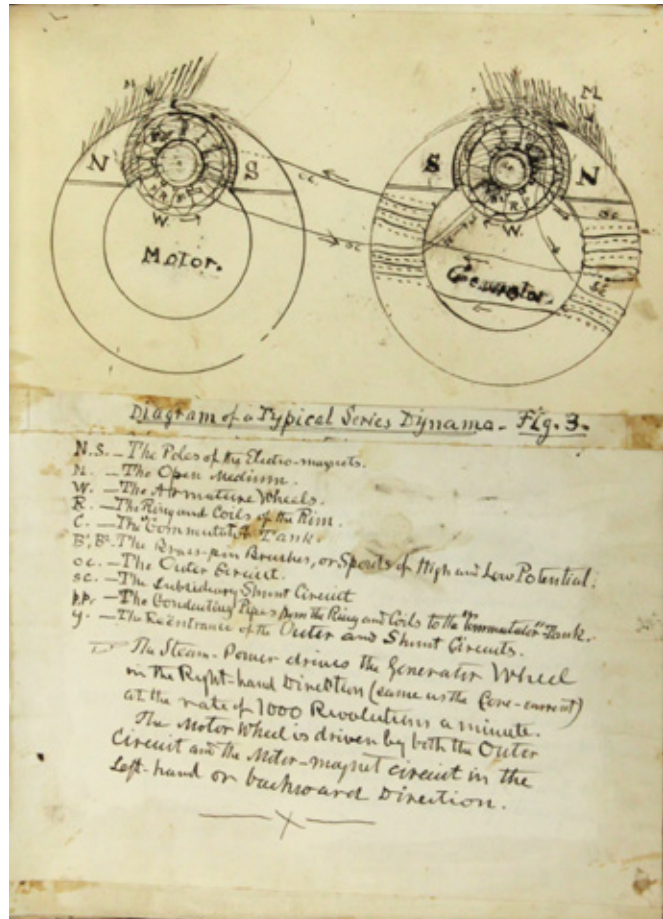 M
M
N
S
S
N
oc
sc
R
R
W.
W.
oc
sc
Motor.
Generator.
Diagram of a Typical Series Dynamo - Fig. 3.
N.S. - The Poles of the Electro-magnets.
M. - The Open Medium.
W. - The Armature Wheels.
R. - The Ring and Coils of the Rim.
C. - The "Commutator" Tank.
B', B². The Brass-pin Brushes, or Spouts of High and Low Potential.
oc. - The Outer Circuit.
sc. - The Subsidiary Shunt Circuit
pp. - The Conducting Pipes from the Ring and Coils to the "Commutator" Tank.
y. - The Reëntrance of the Outer and Shunt Circuits.
The Steam-Power drives the Generator Wheel
in the Right-hand Direction (same as the Core-current)
at the rate of 1000 Revolutions a minute.
The Motor Wheel is driven by both the Outer
Circuit and the Motor-magnet circuit in the
Left-hand or backward Direction.